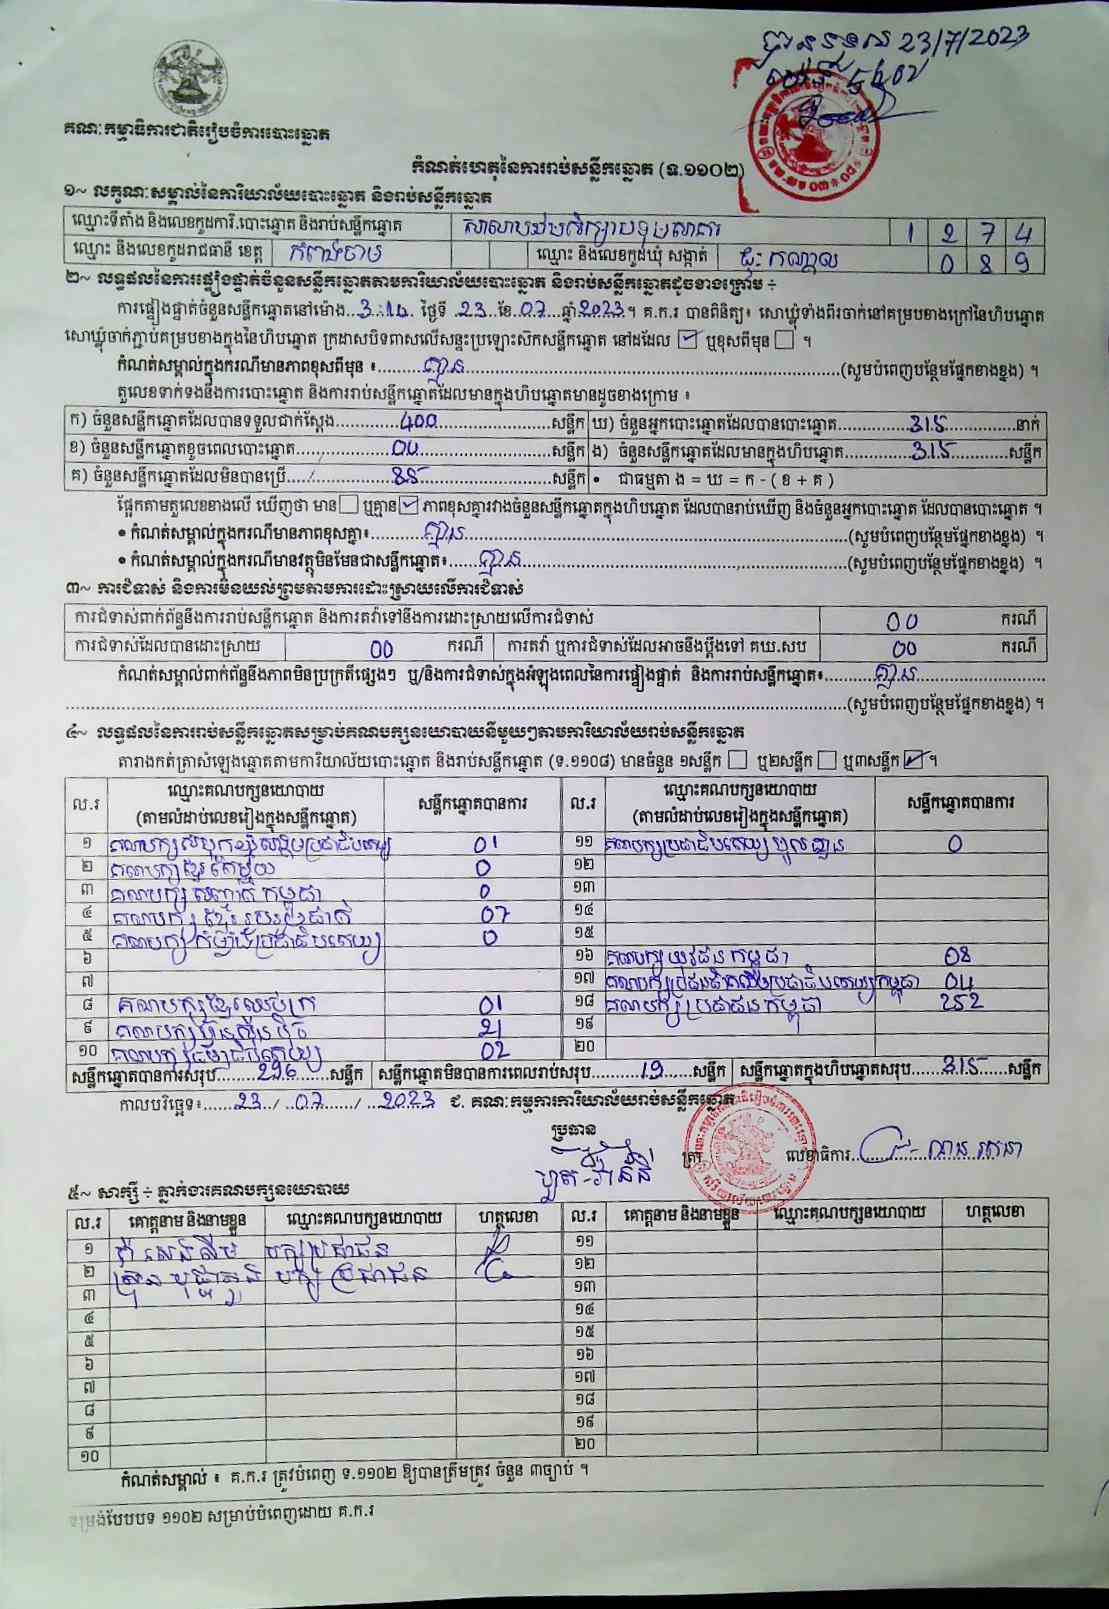 បានទទួល 23/7/2023
គណៈកម្មាធិការជាតិរៀបចំការបោះឆ្នោត
កំណត់ហេតុនៃការរាប់សន្លឹកឆ្នោត (ទ.១១០២)
១~ លក្ខណៈសម្គាល់នៃការិយាល័យបោះឆ្នោត និងរាប់សន្លឹកឆ្នោត
ឈ្មោះទីតាំង និងលេខកូដការិ.បោះឆ្នោត និងរាប់សន្លឹកឆ្នោត 1 2 7 4
ឈ្មោះ និងលេខកូដរាជធានី ខេត្ត កំពង់ចាម ឈ្មោះ និងលេខកូដឃុំ សង្កាត់ 0 8 9
២~ លទ្ធផលនៃការផ្ទៀងផ្ទាត់ចំនួនសន្លឹកឆ្នោតតាមការិយាល័យបោះឆ្នោត និងរាប់សន្លឹកឆ្នោតដូចខាងក្រោម ÷
ការផ្ទៀងផ្ទាត់ចំនួនសន្លឹកឆ្នោតនៅម៉ោង ថ្ងៃទី 23 ខែ 07 ឆ្នាំ 2023 ។ គ.ក.រ បានពិនិត្យ៖ សោឃ្លុំទាំងពីរចាក់នៅគម្របខាងក្រៅនៃហិបឆ្នោត
សោឃ្លុំចាក់ភ្ជាប់គម្របខាងក្នុងនៃហិបឆ្នោត ក្រដាសបិទពាសលើសន្ទះប្រឡោះស៊កសន្លឹកឆ្នោត នៅដដែល ☑ ឬខុសពីមុន ☐ ។
កំណត់សម្គាល់ក្នុងករណីមានភាពខុសពីមុន ៖ គ្មាន (សូមបំពេញបន្ថែមផ្នែកខាងខ្នង) ។
តួលេខទាក់ទងនឹងការបោះឆ្នោត និងការរាប់សន្លឹកឆ្នោតដែលមានក្នុងហិបឆ្នោតមានដូចខាងក្រោម ៖
ក) ចំនួនសន្លឹកឆ្នោតដែលបានទទួលជាក់ស្តែង 400 សន្លឹក ឃ) ចំនួនអ្នកបោះឆ្នោតដែលបានបោះឆ្នោត 315 នាក់
ខ) ចំនួនសន្លឹកឆ្នោតខូចពេលបោះឆ្នោត 00 សន្លឹក ង) ចំនួនសន្លឹកឆ្នោតដែលមានក្នុងហិបឆ្នោត 315 សន្លឹក
គ) ចំនួនសន្លឹកឆ្នោតដែលមិនបានប្រើ 85 សន្លឹក • ជាធម្មតា ង = ឃ = ក - ( ខ + គ )
ផ្អែកតាមតួលេខខាងលើ ឃើញថា មាន ☐ ឬគ្មាន ☑ ភាពខុសគ្នារវាងចំនួនសន្លឹកឆ្នោតក្នុងហិបឆ្នោត ដែលបានរាប់ឃើញ និងចំនួនអ្នកបោះឆ្នោត ដែលបានបោះឆ្នោត ។
• កំណត់សម្គាល់ក្នុងករណីមានភាពខុសគ្នា៖ គ្មាន (សូមបំពេញបន្ថែមផ្នែកខាងខ្នង) ។
• កំណត់សម្គាល់ក្នុងករណីមានវត្ថុមិនមែនជាសន្លឹកឆ្នោត៖ គ្មាន (សូមបំពេញបន្ថែមផ្នែកខាងខ្នង) ។
៣~ ការជំទាស់ និងការមិនយល់ព្រមតាមការដោះស្រាយលើការជំទាស់
ការជំទាស់ពាក់ព័ន្ធនឹងការរាប់សន្លឹកឆ្នោត និងការតវ៉ាទៅនឹងការដោះស្រាយលើការជំទាស់ 00 ករណី
ការជំទាស់ដែលបានដោះស្រាយ 00 ករណី ការតវ៉ា ឬការជំទាស់ដែលអាចនឹងប្តឹងទៅ គឃ.សប 00 ករណី
កំណត់សម្គាល់ពាក់ព័ន្ធនឹងភាពមិនប្រក្រតីផ្សេងៗ ឬ/និងការជំទាស់ក្នុងអំឡុងពេលនៃការផ្ទៀងផ្ទាត់ និងការរាប់សន្លឹកឆ្នោត៖ គ្មាន
(សូមបំពេញបន្ថែមផ្នែកខាងខ្នង) ។
៤~ លទ្ធផលនៃការរាប់សន្លឹកឆ្នោតសម្រាប់គណបក្សនយោបាយនីមួយៗតាមការិយាល័យរាប់សន្លឹកឆ្នោត
តារាងកត់ត្រាសំឡេងឆ្នោតតាមការិយាល័យបោះឆ្នោត និងរាប់សន្លឹកឆ្នោត (ទ.១១០៨) មានចំនួន ១សន្លឹក ☐ ឬ២សន្លឹក ☐ ឬ៣សន្លឹក ☑ ។
ល.រ ឈ្មោះគណបក្សនយោបាយ (តាមលំដាប់លេខរៀងក្នុងសន្លឹកឆ្នោត) សន្លឹកឆ្នោតបានការ ល.រ ឈ្មោះគណបក្សនយោបាយ (តាមលំដាប់លេខរៀងក្នុងសន្លឹកឆ្នោត) សន្លឹកឆ្នោតបានការ
១ 01 ១១ គណបក្សប្រជាធិបតេយ្យមូលដ្ឋាន 0
២ គណបក្សខ្មែរតែមួយ 0 ១២
៣ គណបក្សសញ្ជាតិកម្ពុជា 0 ១៣
៤ គណបក្សខ្មែររួបរួមជាតិ 07 ១៤
៥ គណបក្សកម្លាំងប្រជាធិបតេយ្យ 0 ១៥
៦ ១៦ គណបក្សយុវជនកម្ពុជា 08
៧ ១៧ 04
៨ គណបក្សខ្មែរឈប់ក្រ 01 ១៨ គណបក្សប្រជាជនកម្ពុជា 252
៩ គណបក្សហ្វ៊ុនស៊ិនប៉ិច 21 ១៩
១០ គណបក្សធម្មាធិបតេយ្យ 02 ២០
សន្លឹកឆ្នោតបានការសរុប 296 សន្លឹក សន្លឹកឆ្នោតមិនបានការពេលរាប់សរុប 19 សន្លឹក សន្លឹកឆ្នោតក្នុងហិបឆ្នោតសរុប 315 សន្លឹក
កាលបរិច្ឆេទ៖ 23 / 07 / 2023 ជ. គណៈកម្មការការិយាល័យរាប់សន្លឹកឆ្នោត
ប្រធាន
លេខាធិការ
៥~ សាក្សី ÷ ភ្នាក់ងារគណបក្សនយោបាយ
ល.រ គោត្តនាម និងនាមខ្លួន ឈ្មោះគណបក្សនយោបាយ ហត្ថលេខា ល.រ គោត្តនាម និងនាមខ្លួន ឈ្មោះគណបក្សនយោបាយ ហត្ថលេខា
១ បក្សប្រជាជន ១១
២ បក្សប្រជាជន ១២
៣ ១៣
៤ ១៤
៥ ១៥
៦ ១៦
៧ ១៧
៨ ១៨
៩ ១៩
១០ ២០
កំណត់សម្គាល់ ៖ គ.ក.រ ត្រូវបំពេញ ទ.១១០២ ឱ្យបានត្រឹមត្រូវ ចំនួន ៣ច្បាប់ ។
ទម្រង់បែបបទ ១១០២ សម្រាប់បំពេញដោយ គ.ក.រ